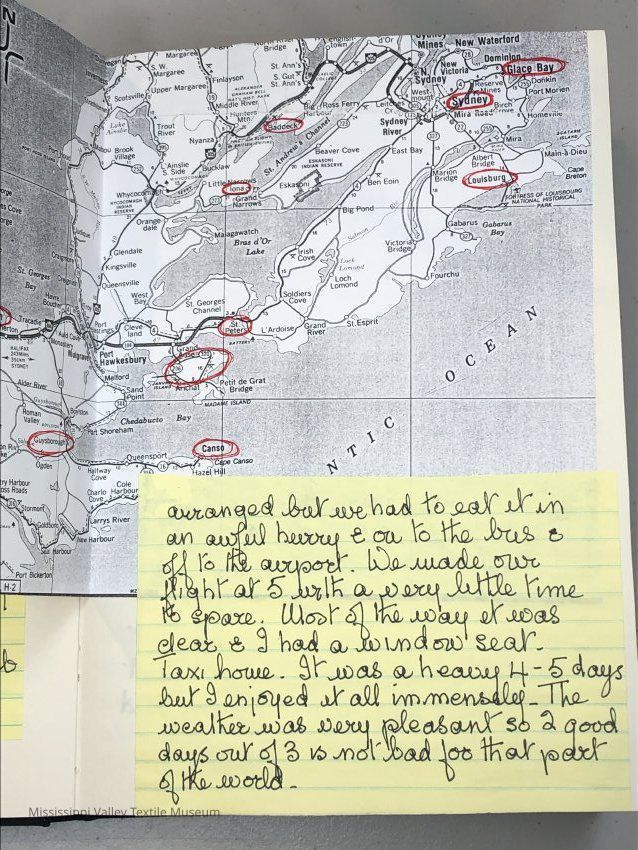 N
S.W. Margaree
Upper Margaree
Scotsville
Lake Ainslie
Finlayson
St. Ann's
S. Gut St. Ann's
English-town
d'Or
Sydney Mines
New Waterford
New Victoria
Dominion
Glace Bay
Donkin
Port Morien
Reserve Mines
Sydney
Birch Grove
Homeville
Mira Road
West-mount
Sydney River
Leitches
Big
Ross Ferry
Middle River
Trout River
Nyanza
Baddeck
St. Andrew's Channel
Beaver Cove
ESKASONI INDIAN RESERVE
Eskasoni
East Bay
Ben Eoin
Marion Bridge
Albert Bridge
Mira
Main-à-Dieu
SCATARI ISLAND
Cape Breton
Louisburg
FORTRESS OF LOUISBOURG NATIONAL HISTORICAL PARK
Gabarus
Gabarus Bay
Brook Village
Ainslie S. Side
Bucklaw
Whycocomagh
WHYCOCOMAGH INDIAN RESERVE
Little Narrows
Iona
Grand Narrows
Orange-dale
Malagawatch
Bras d'Or Lake
Big Pond
Salmon
Victoria Bridge
Irish Cove
Loch Lomond
Loch Lomond
Fourchu
Glendale
Kingsville
Queensville
West Bay
St. Georges Channel
Soldiers Cove
St. Georges Bay
Tracadie
Port Hastings
Cleve land
St. Peters
L'Ardoise
Grand River
St. Esprit
Port Hawkesbury
Mulgrave
Melford
Sand Point
Arichat
Petit de Grat Bridge
MADAME ISLAND
HALIFAX
SYDNEY
Alder River
Roman Valley
Boylston
Guysborough
Ogden
Port Shoreham
Chedabucto Bay
Queensport
Halfway Cove
Canso
Cape Canso
Hazel Hill
Charlo Cove
Cole Harbour
Larrys River
New Harbour
Stormont
Goldboro
Port Bickerton
OCEAN
NTIC
H-2
arranged but we had to eat it in
an awful hurry & on to the bus &
off to the airport. We made our
flight at 5 with a very little time
to spare. Most of the way it was
clear & I had a window seat.
Taxi home. It was a heavy 4-5 days
but I enjoyed it all immensely. The
weather was very pleasant so 2 good
days out of 3 is not bad for that part
of the world.
Mississippi Valley Textile Museum